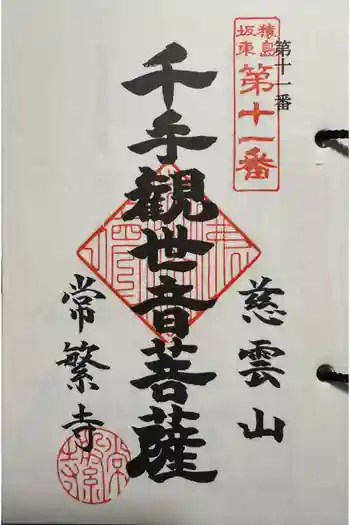 第十一番
猿島
坂東
第十一番
慈雲山
千手観世音菩薩
常繁寺
常繁寺